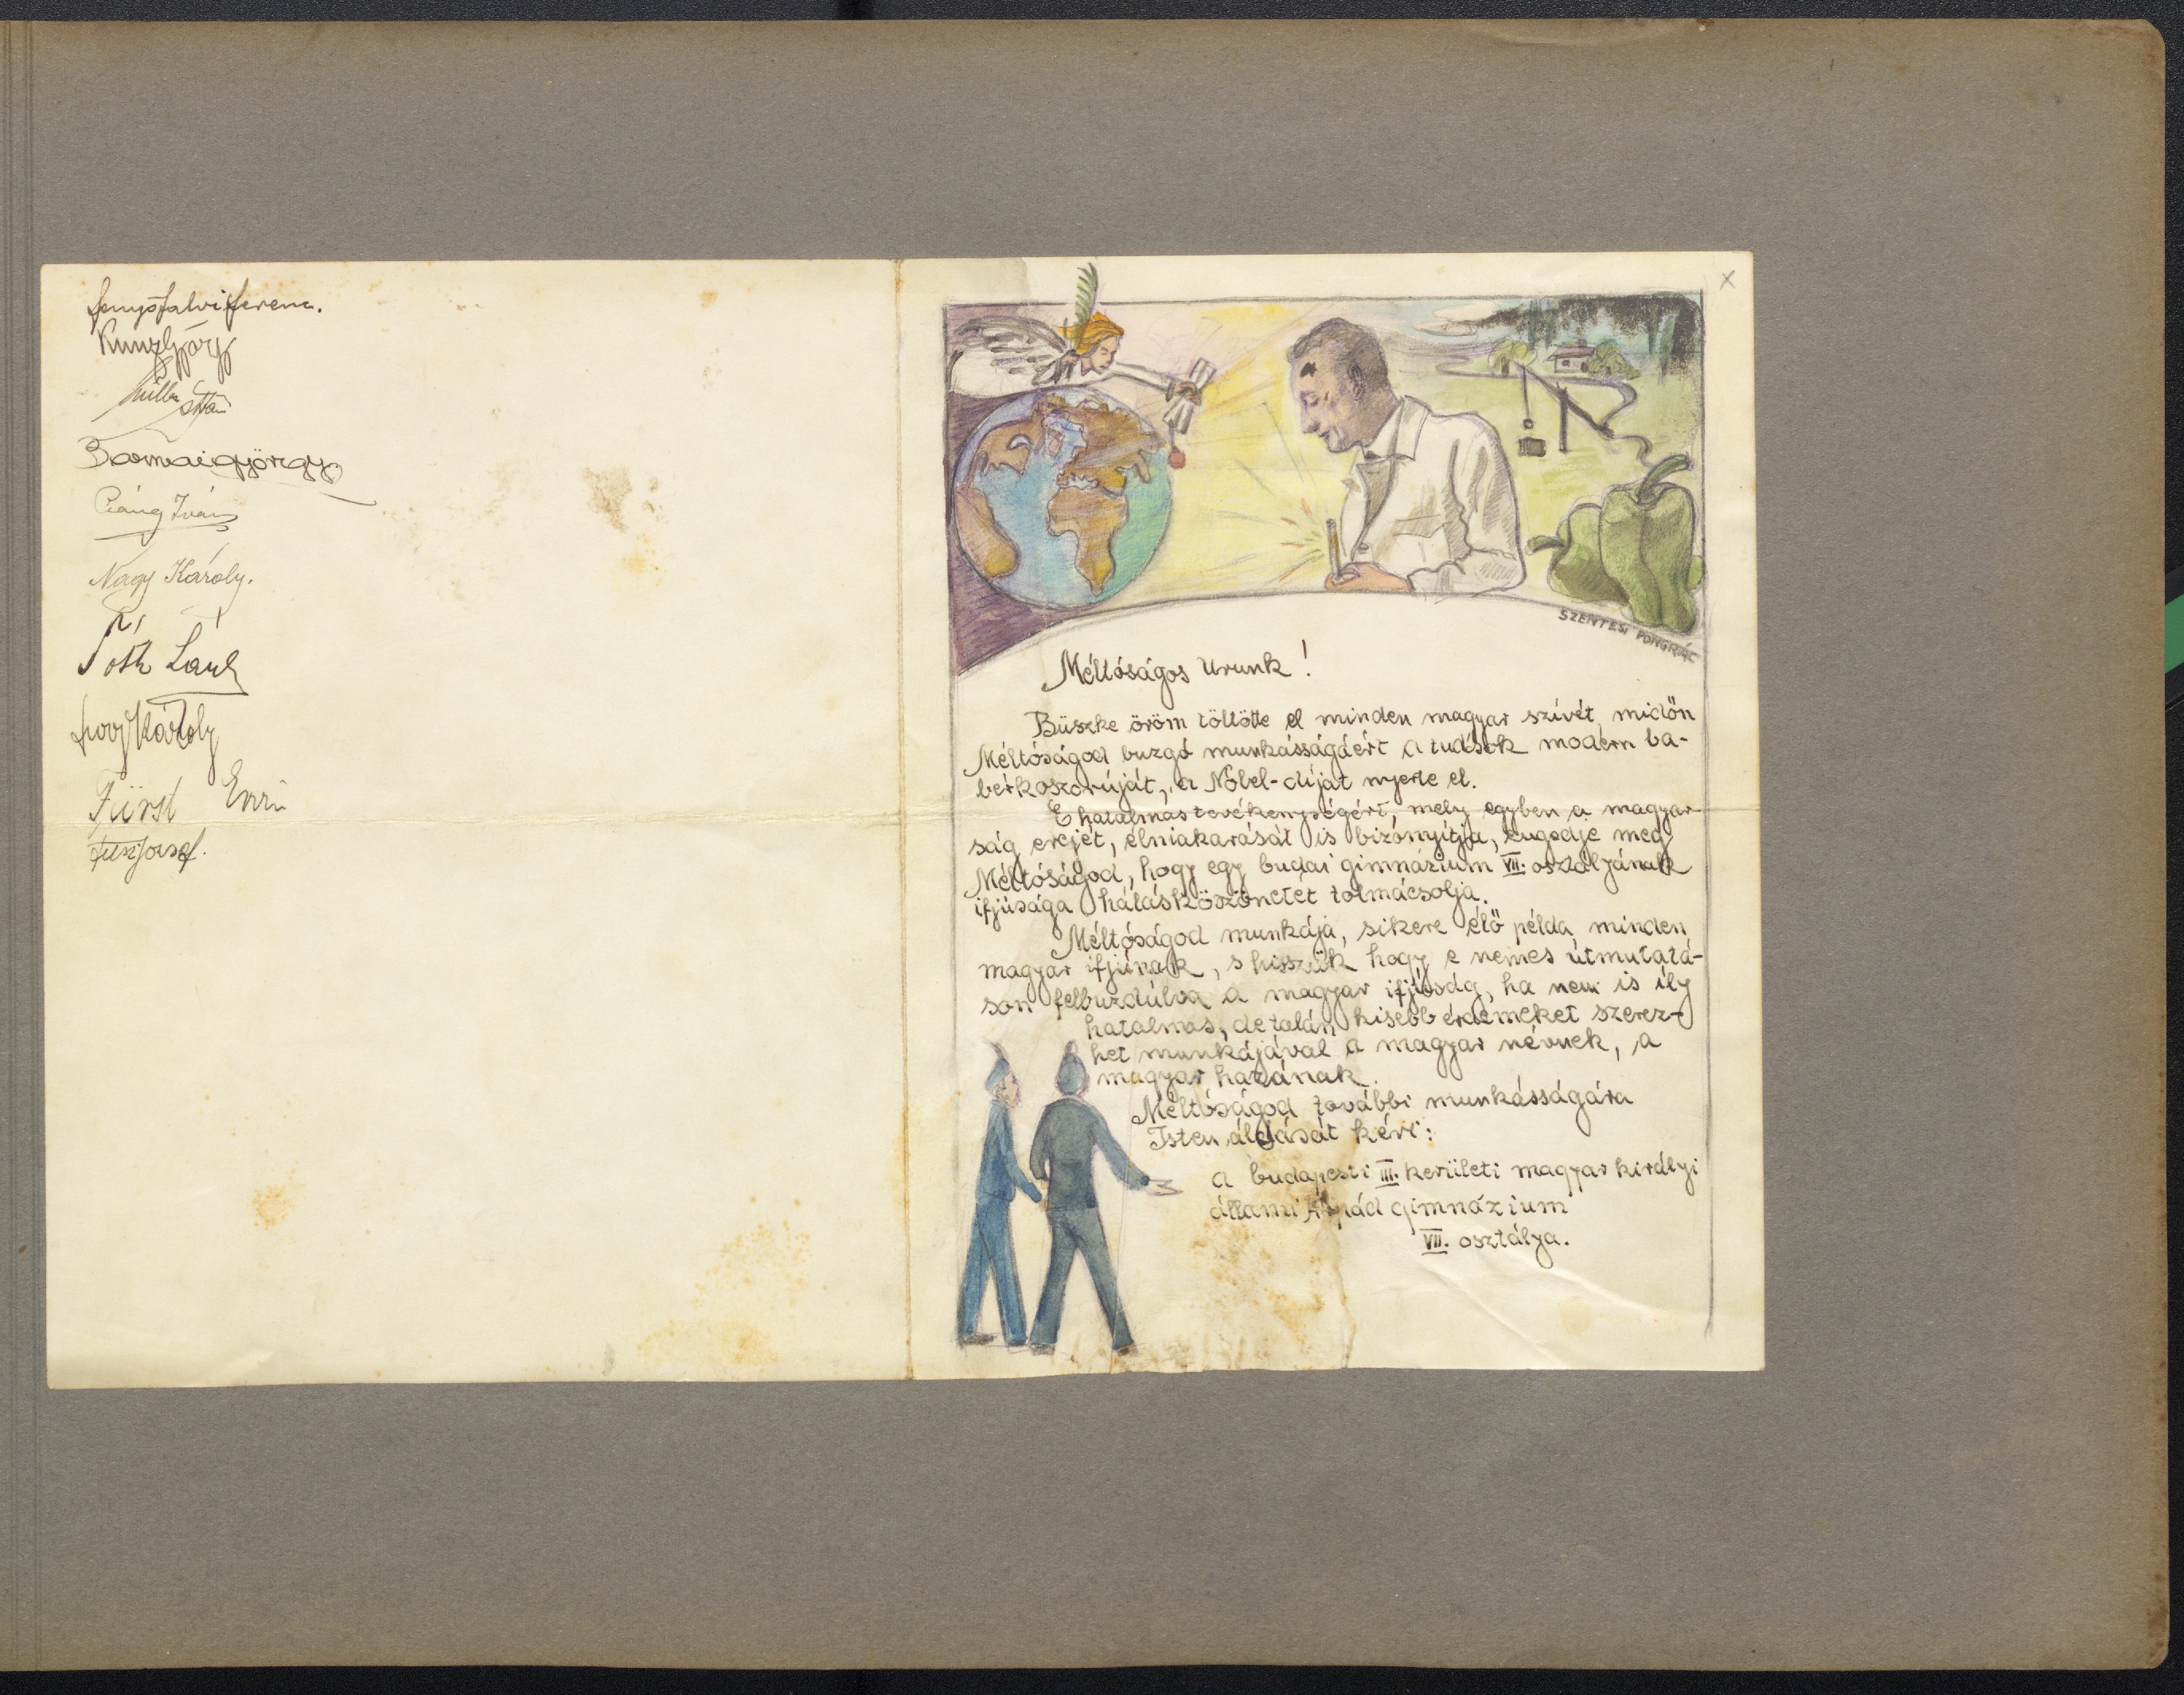 Fenyőfalvi Ferenc.
Kunzl György
Müller
Barnai György
Iván
Nagy Károly.
Tóth
Károly
Fürst Ervin
József.
x
SZENTESI PONGRÁC
Méltóságos Urunk!
Büszke öröm töltötte el minden magyar szívét, midőn
Méltóságod buzgó munkásságáért a tudósok modern ba-
bérkoszorúját, a Nobel-díjat nyerte el.
E hatalmas tevékenységért, mely egyben a magyar-
ság erejét, élniakarását is bizonyítja, engedje meg
Méltóságod, hogy egy budai gimnázium VII. osztályának
ifjúsága hálás köszönetét tolmácsolja.
Méltóságod munkája, sikere élő példa minden
magyar ifjúnak, s hisszük hogy e nemes útmutatá-
son felbuzdúlva a magyar ifjúság, ha nem is ily
hatalmas, de talán kisebb érdemeket szerez-
het munkájával a magyar névnek, a
magyar hazának.
Méltóságod további munkásságára
Isten áldását kéri:
a budapesti III. kerületi magyar királyi
állami Árpád gimnázium
VII. osztálya.